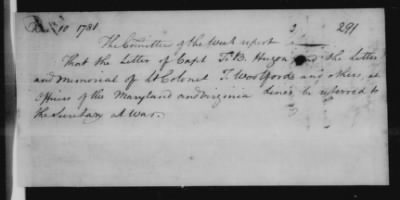 10 1781 3 291
The Committee of the Week report
That the Letter of Capt T. B. and the Letter
and Memorial of Lt Colonel T. Woolford and others,
Officers of the Maryland and Virginia Lines be referred to
the Secretary at War.